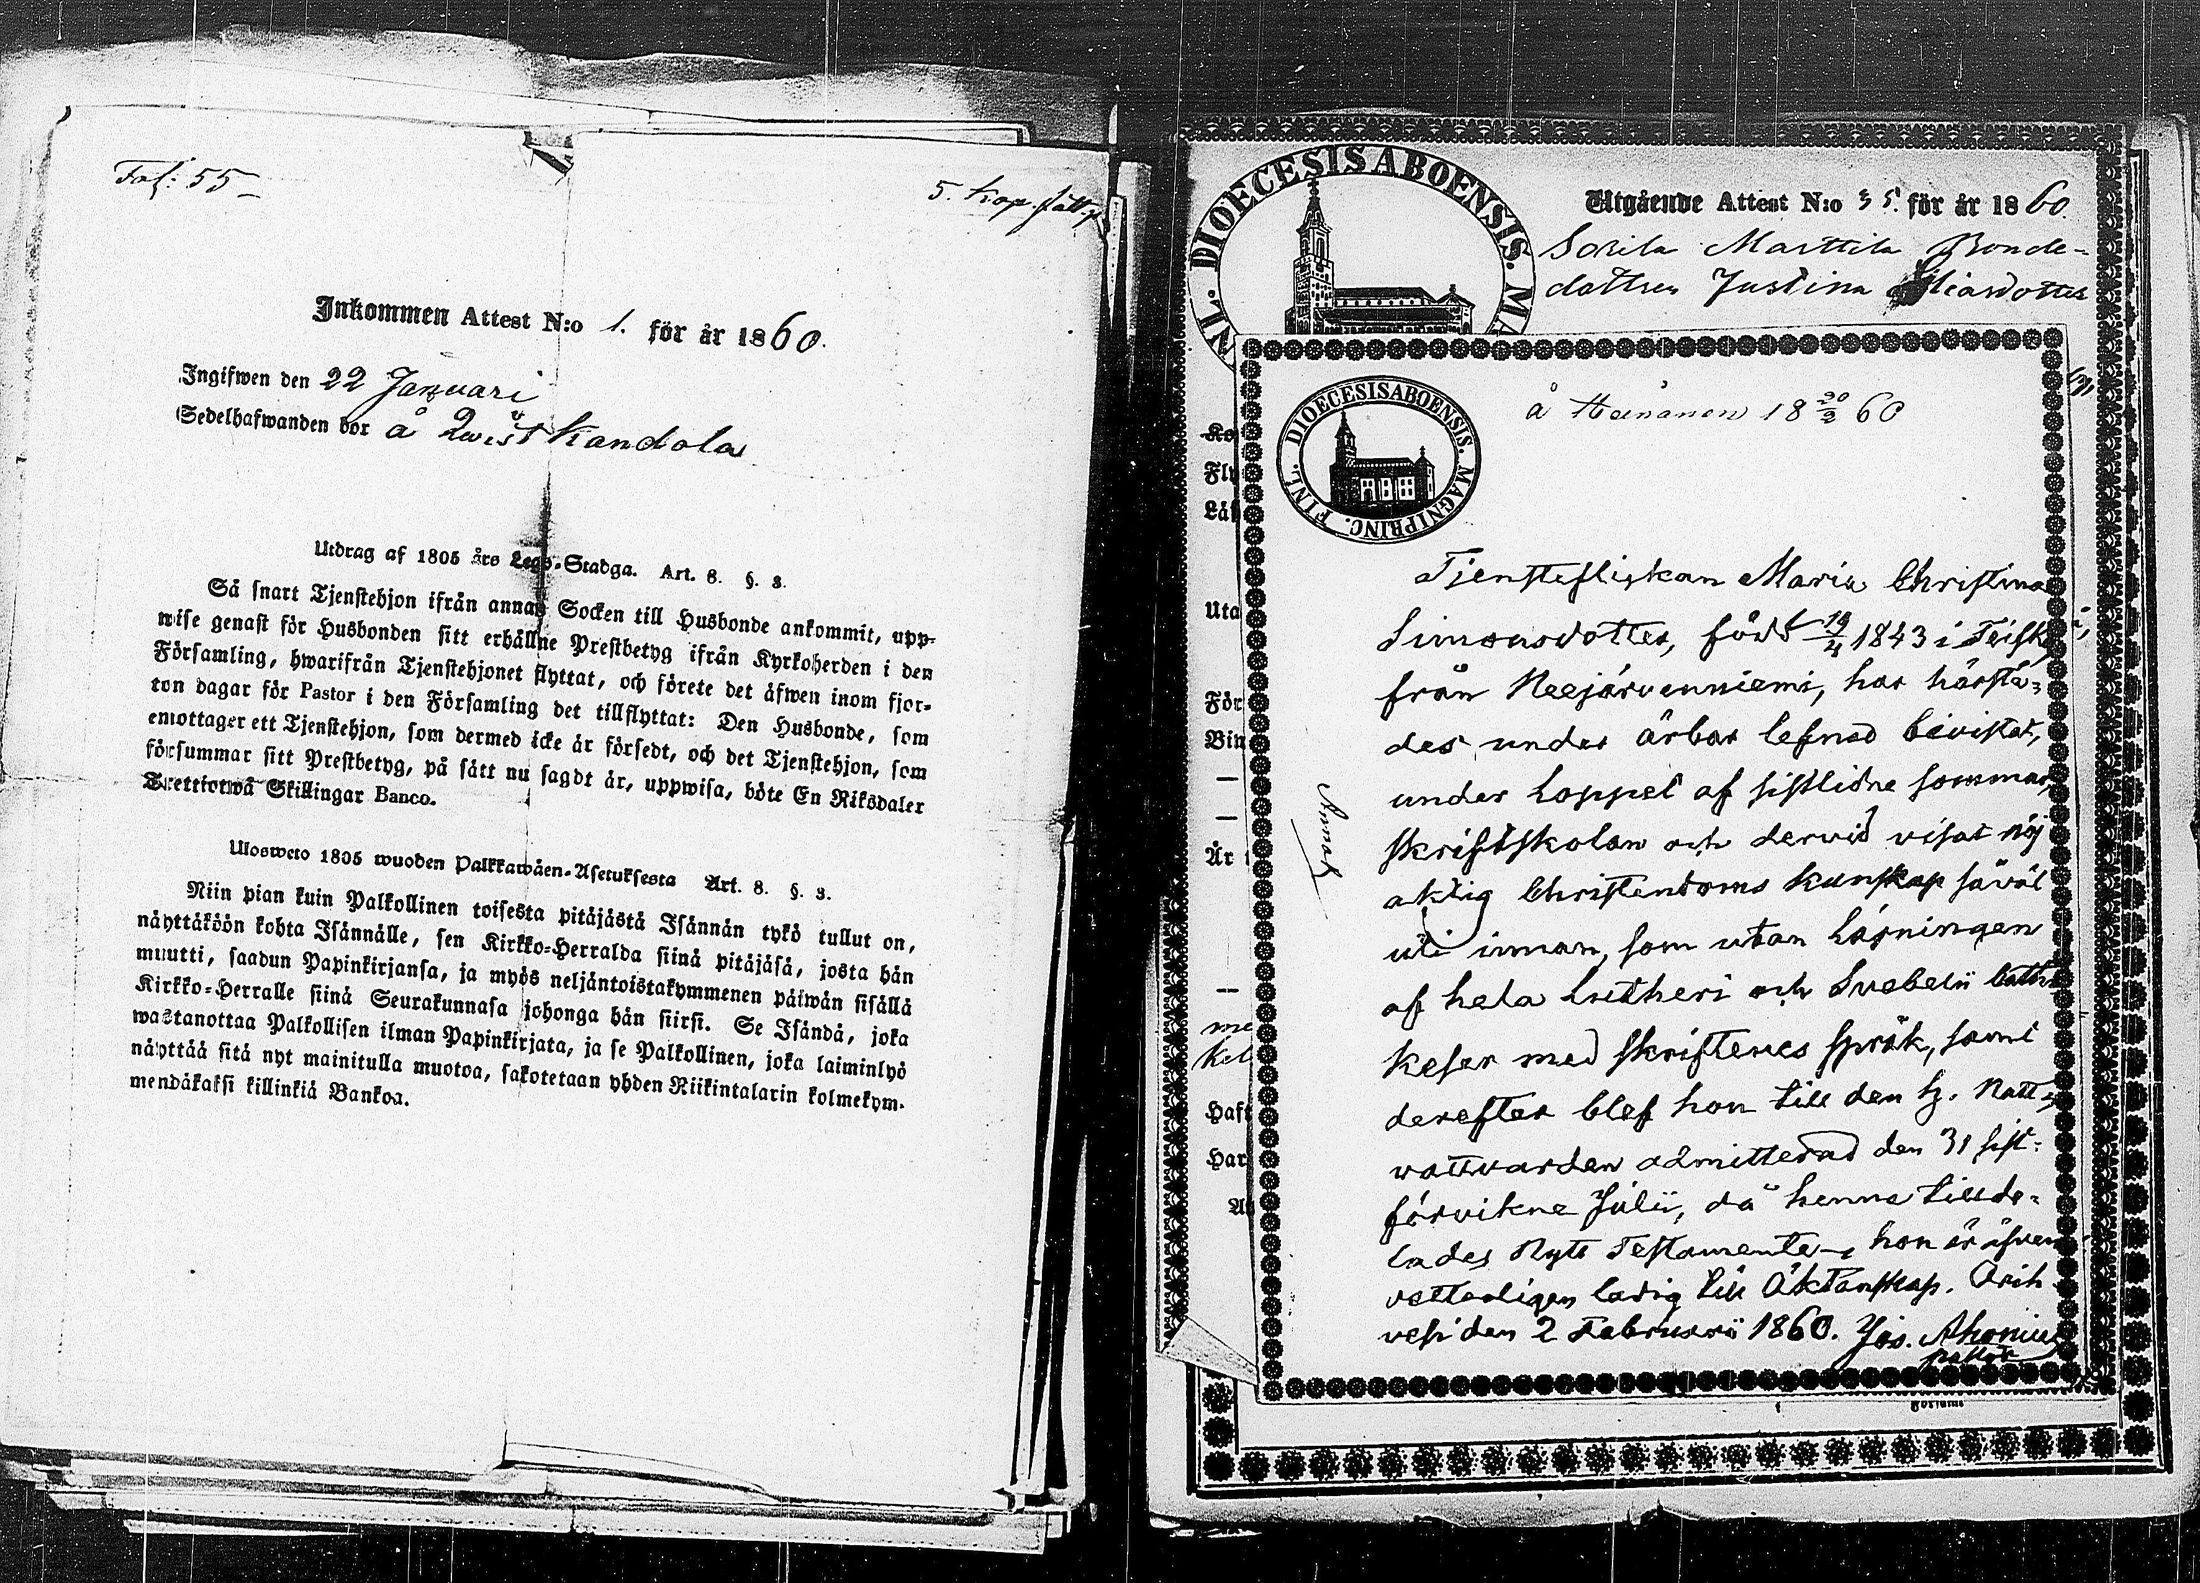 Fol: 55
5. Kop.
Inkommen Attest N:o 1. för år 1860.
Ingifwen den 22 Januari
Sedelhafwanden bor å Qvist Kandola
Utdrag af 1805 års Lego-Stadga. Art. 8. §. 3.
Så snart Tjenstehjon ifrån annan Socken till Husbonde ankommit, upp-
wise genast för Husbonden sitt erhållne Prestbetyg ifrån Kyrkoherden i den
Församling, hwarifrån Tjenstehjonet flyttat, och förete det äfwen inom fjor-
ton dagar för Pastor i den Församling det tillflyttat: Den Husbonde, som
emottager ett Tjenstehjon, som dermed icke är försedt, och det Tjenstehjon, som
försummar sitt Prestbetyg, på sätt nu sagdt är, uppwisa, böte En Riksdaler
Trettiotwå Skillingar Banco.
Ulosweto 1805 wuoden Palkkawäen-Asetuksesta Art. 8. §. 3.
Niin pian kuin Palkollinen toisesta pitäjästä Isännän tykö tullut on,
näyttäköön kohta Isännälle, sen Kirkko-Herralda siinä pitäjäsä, josta hän
muutti, saadun Papinkirjansa, ja myös neljäntoistakymmenen päiwän sisällä
Kirkko-Herralle siinä Seurakunnasa johonga hän siirsi. Se Isändä, joka
wastanottaa Palkollisen ilman Papinkirjata, ja se Palkollinen, joka laiminlyö
näyttää sitä nyt mainitulla muotoa, sakotetaan yhden Riikintalarin kolmekym-
mendäkaksi killinkiä Bankoa.
DIOECESIS ABOENSIS. MA
NL.
Utgående Attest N:o 35. för år 1860.
Sorila Marttila Bonde-
dottren Justina
DIOECESIS ABOENSIS. MAGNI PRINC. FINL.
å Heinänen 18 20/2 60
Tjensteflickan Maria Christina
Simonsdotter, född 19/4 1843 i Teisko
från Neejärvenniemi, har härstä-
des under ärbar lefnad bivistat,
under loppet af sistlidne sommar,
skriftskolan och dervid visat nöj
aktig Christendoms kunskap såväl
uti innan, som utan läsningen
af hela Lutheri och Svebelii Cathe
keser med skriftenes språk, samt
derefter blef hon till den h. Natt-
vattvarden admitterad den 31 sist-
förvikne Julii, då henne tillde-
lades Nytt Testamente, hon är äfven
vetterligen ledig till Äktenskap. Orih
vesi den 2 Februari 1860. Jos. Ahonius
Ko
Fly
Läs
Uta
För
Bin
—
—
År
—
me
Kel
Haft
Har